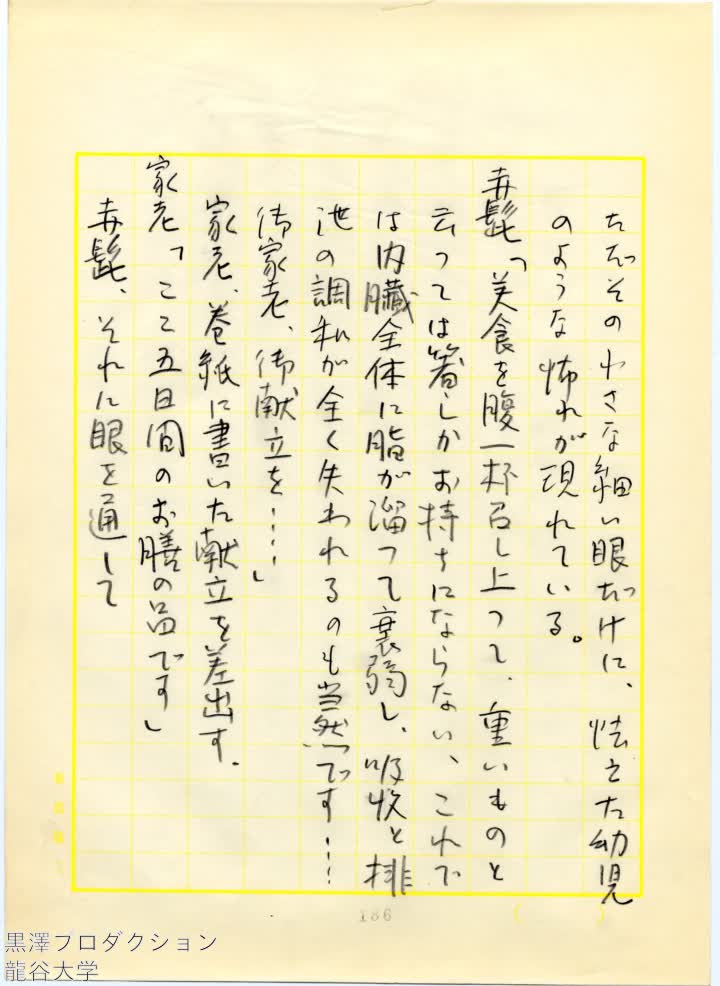 ただその小さな細い眼だけに、怯えた幼児
のような怖れが現れている。
赤髭「美食を腹一杯召し上って、重いものと
云っては箸しかお持ちにならない、これで
は内臓全体に脂が溜って衰弱し、吸收と排
泄の調和が全く失われるのも当然です…
御家老、御献立を‥‥」
家老、巻紙に書いた献立を差出す。
家老「ここ五日間のお膳の品です」
赤髭、それに眼を通して
186
黒澤プロダクション
龍谷大学